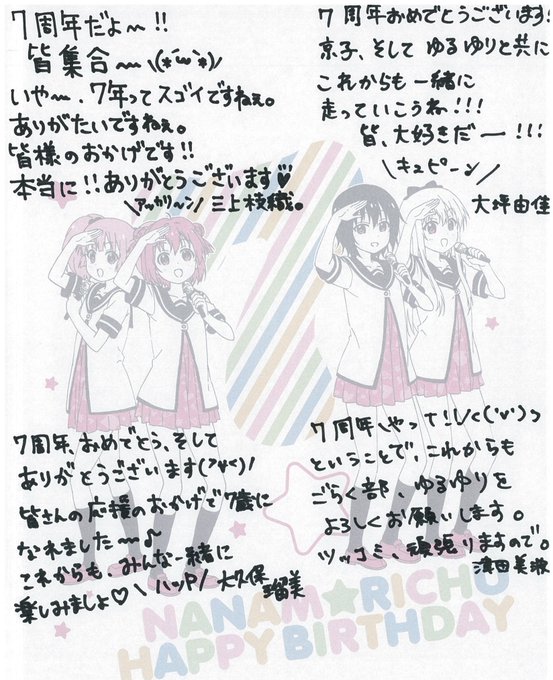 7周年だよ〜!!
皆集合〜\(*´ω`*)/
いや〜、7年ってスゴイですねぇ。
ありがたいですねぇ。
皆様のおかげです!!
本当に!!ありがとうございます♡
\アッカリ〜ン/ 三上枝織。
7周年おめでとうございます!
京子、そして ゆるゆりと共に
これからも 一緒に
走っていこうね!!!
皆、大好きだー!!!
\キュピーン/
大坪由佳
7周年、おめでとう、そして
ありがとうございます(>∀<)!
皆さんの応援のおかげで7歳に
なれました〜♪
これからも、みんな一緒に
楽しみましょ♡ \ハッP/ 大久保瑠美
7周年\やって!!/<('v')っ
ということで、これからも
ごらく部、ゆるゆりを
よろしくお願いします。
ツッコミ、頑張りますので。
津田美波
NANAM★RICHU
HAPPY BIRTHDAY